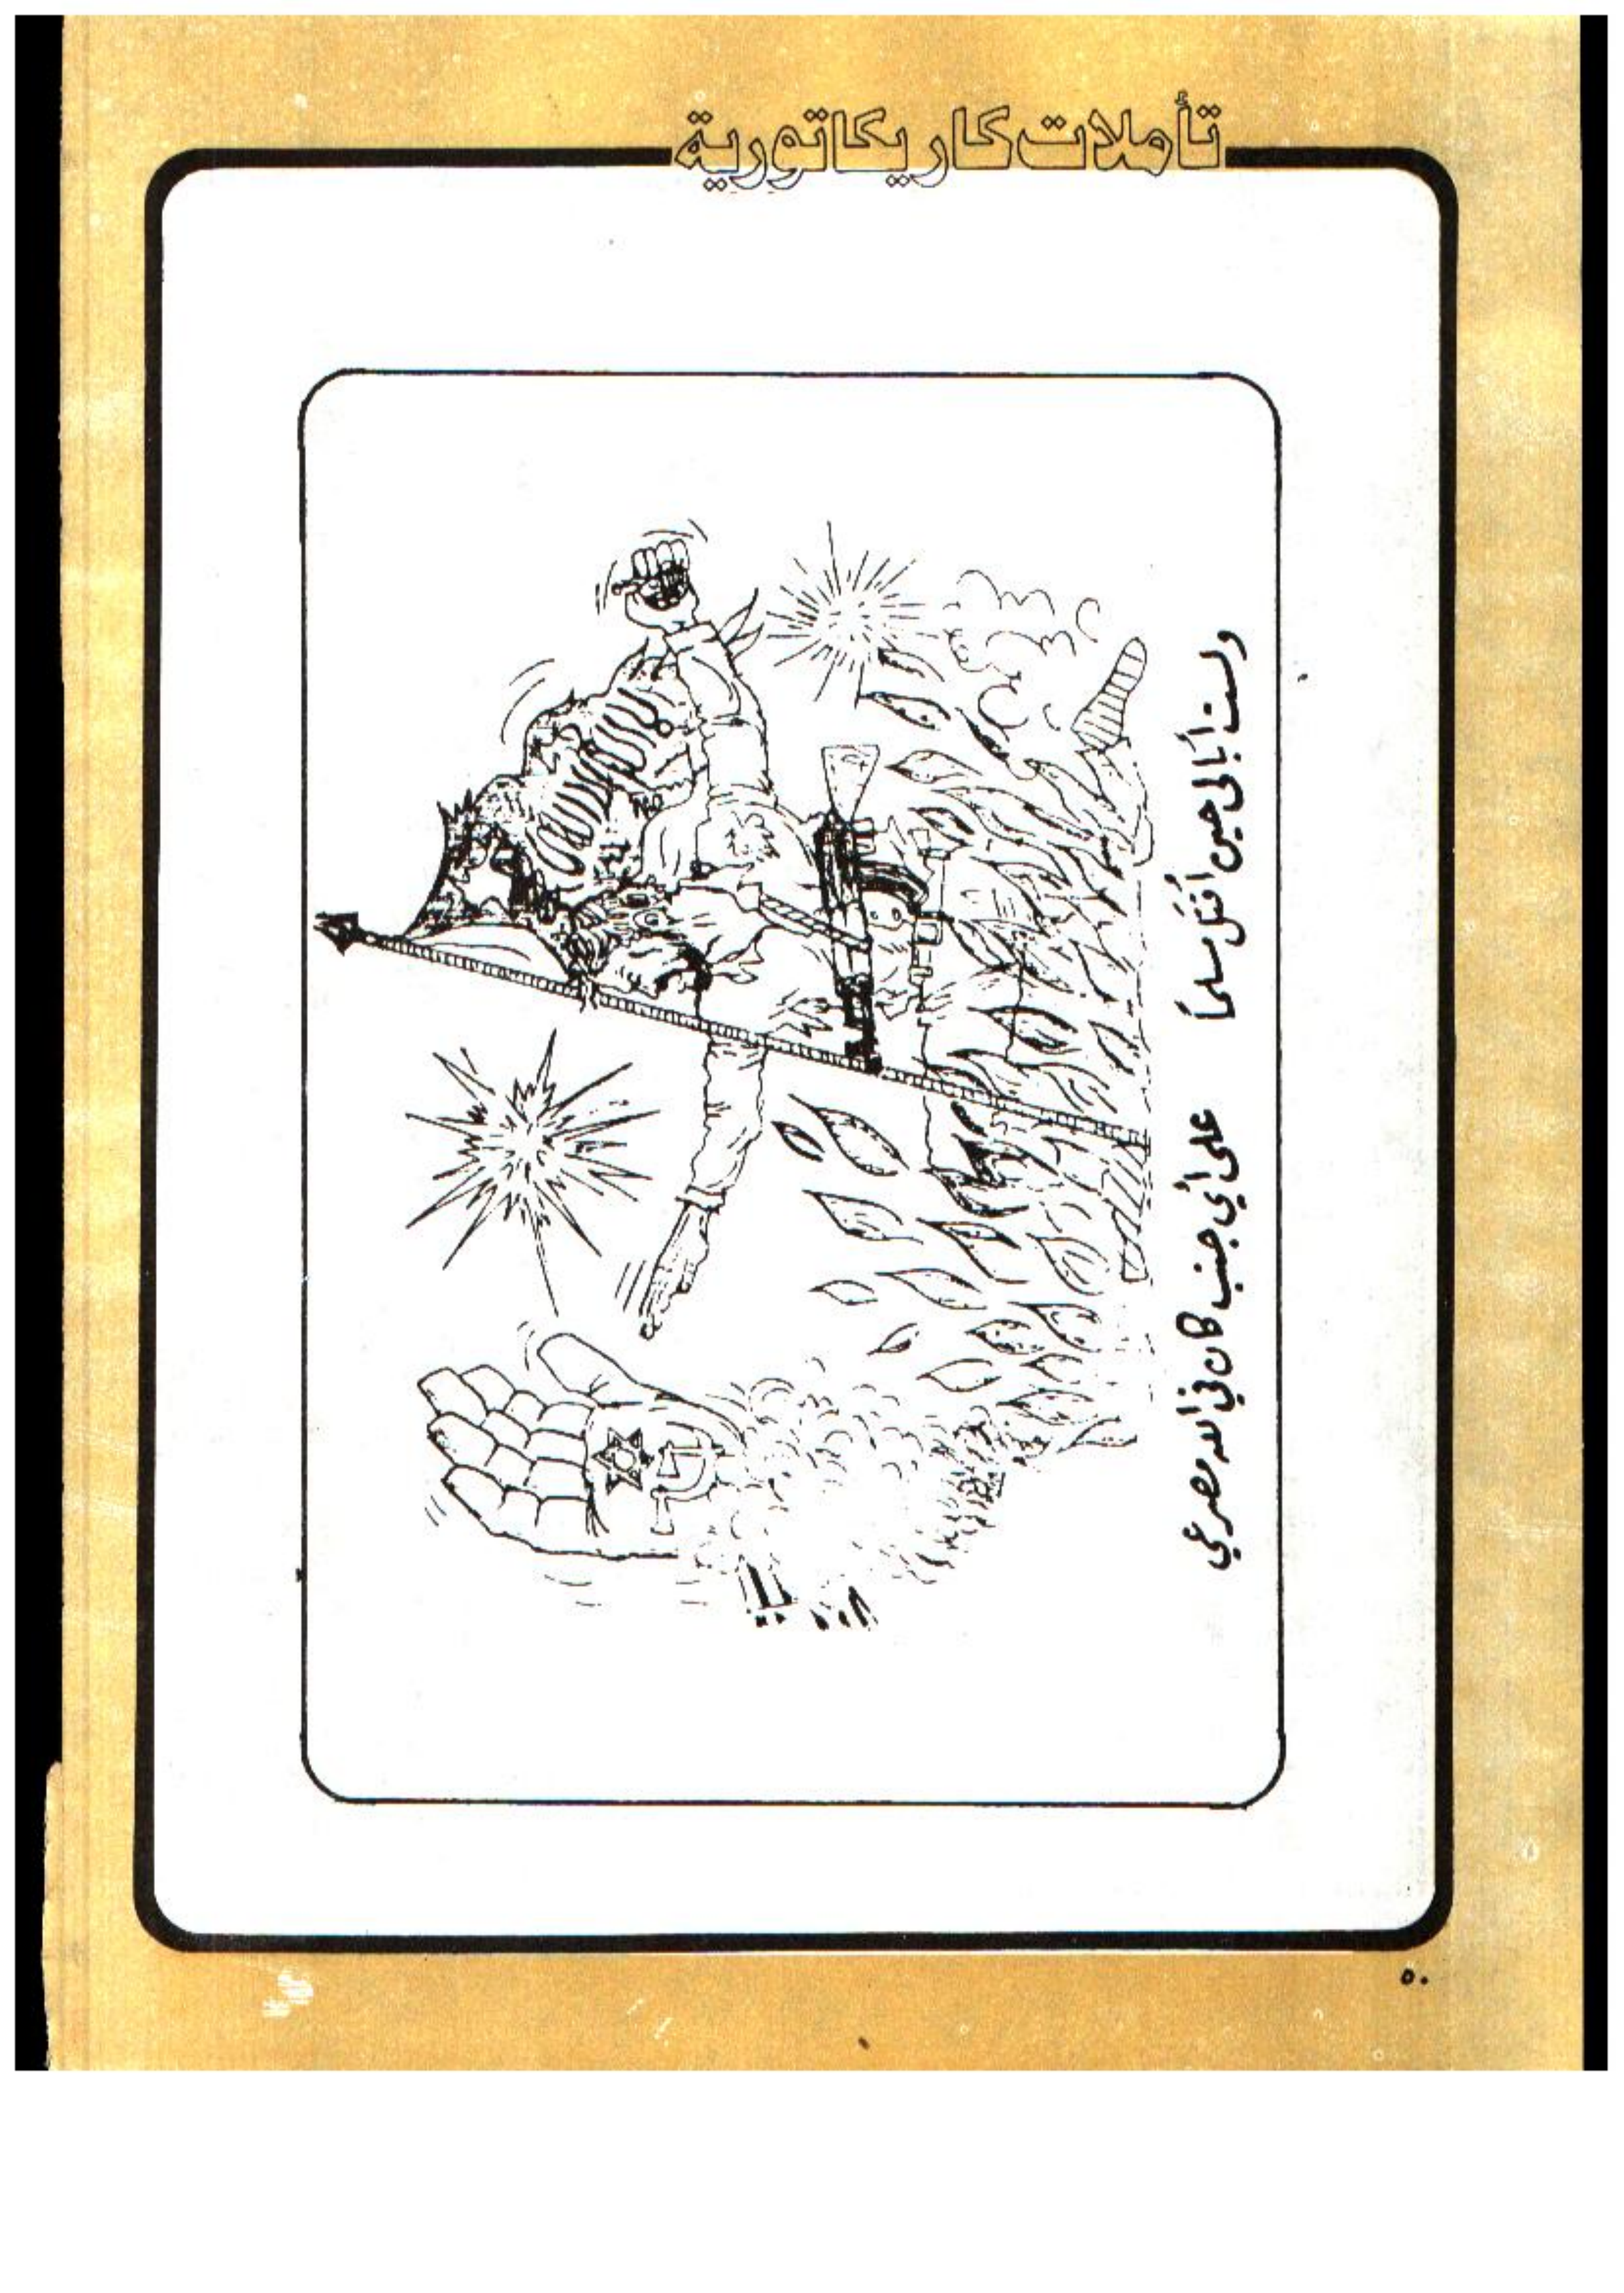 تأملات كاريكاتورية
ولست أبالي حين أقتل مسلماً على أي جنب كان في الله مصرعي
٥٠